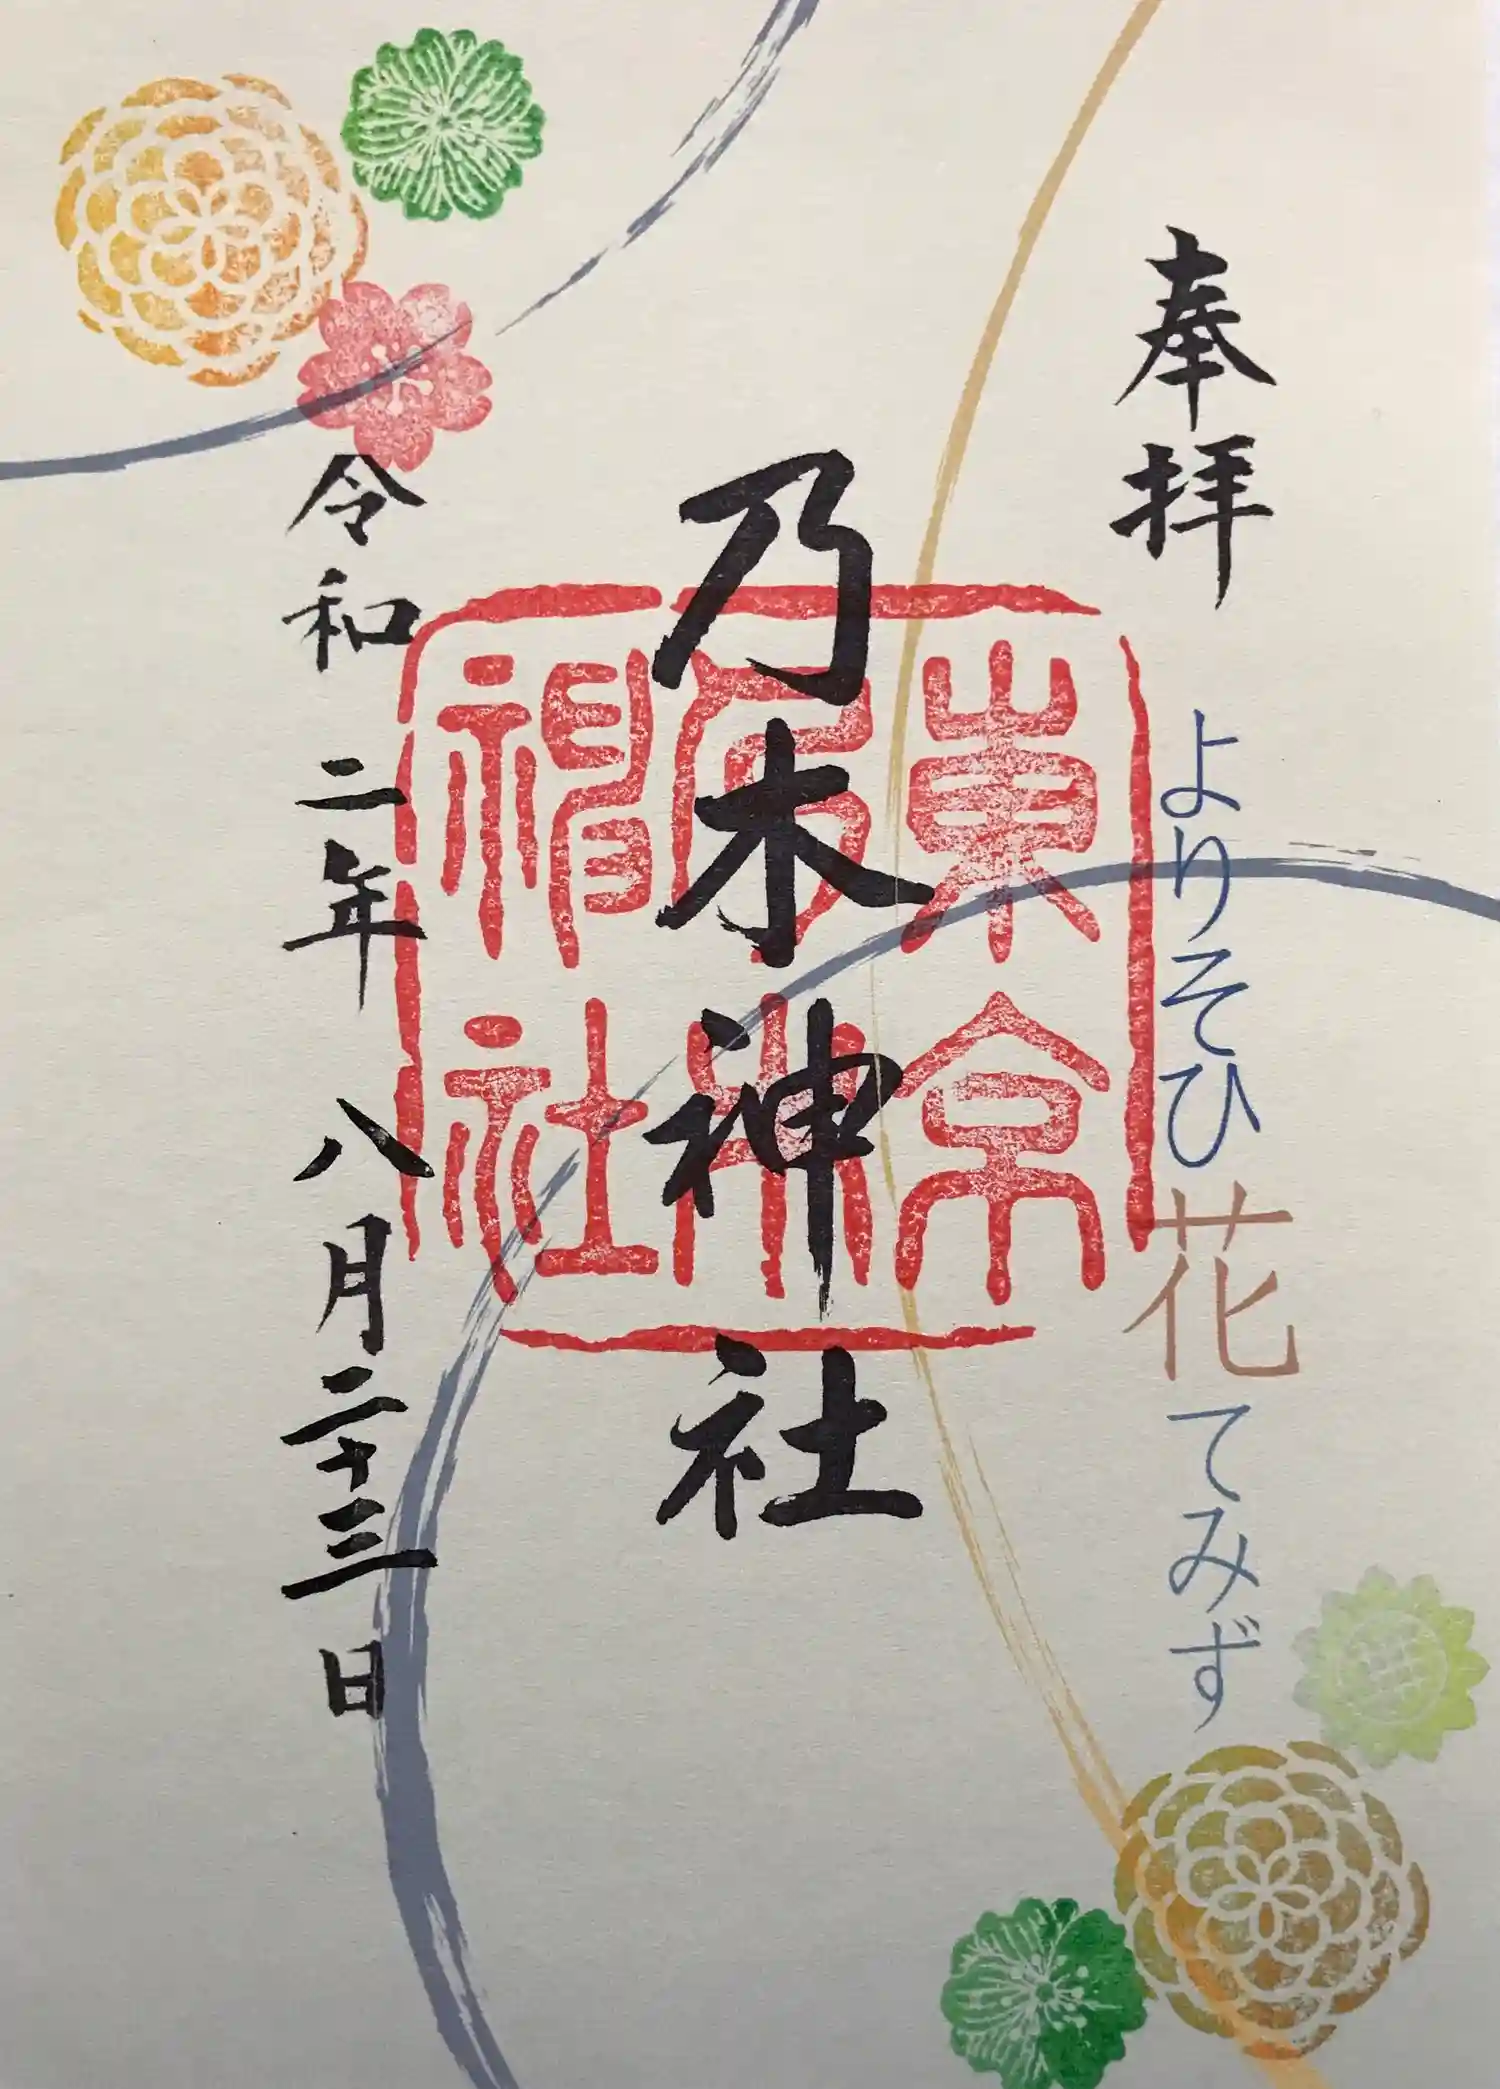 奉拝
よりそひ花てみず
乃木神社
令和二年八月二十三日
東京
乃木
神社